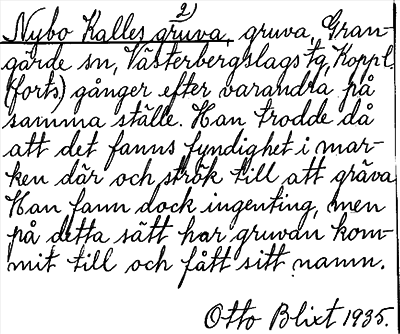 2)
Nybo Kalles gruva, gruva, Gran-
gärde sn, Västerbergslags tg, Koppl.
(forts) gånger efter varandra på
samma ställe. Han trodde då
att det fanns fyndighet i mar-
ken där och strök till att gräva
Han fann dock ingenting, men
på detta sätt har gruvan kom-
mit till och fått sitt namn.
Otto Blixt 1935.